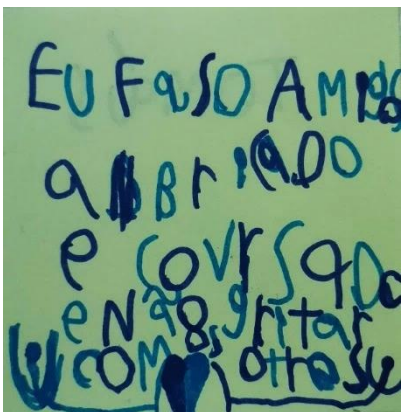 EU FaSO AMigo
a BriCADO
e COVrSaDo
e Não gritar
COM os otros